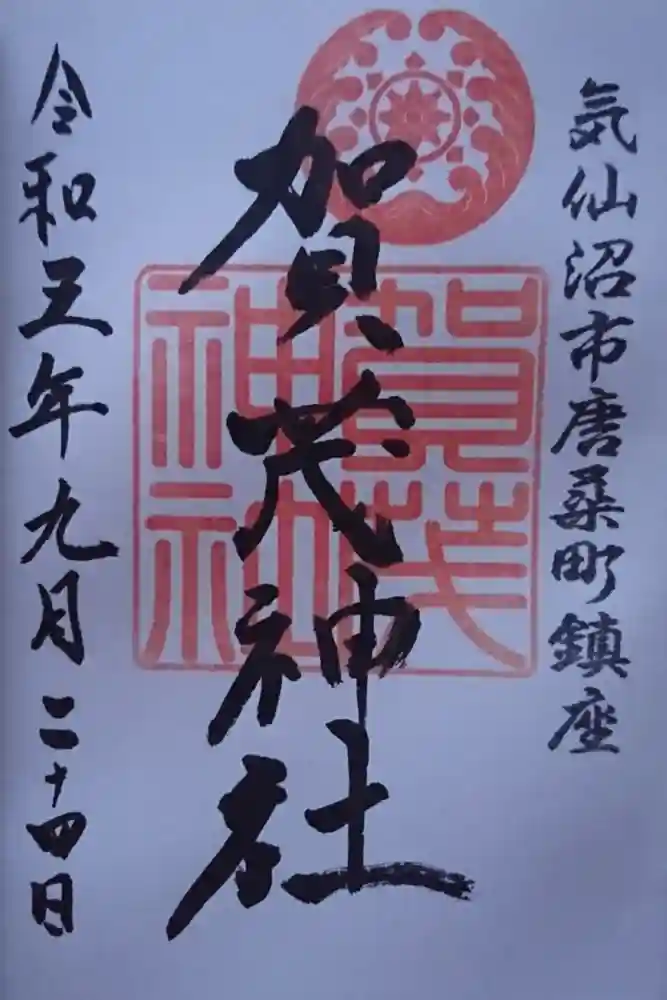 気仙沼市唐桑町鎮座
賀茂神社
賀茂
神社
令和五年九月二十四日